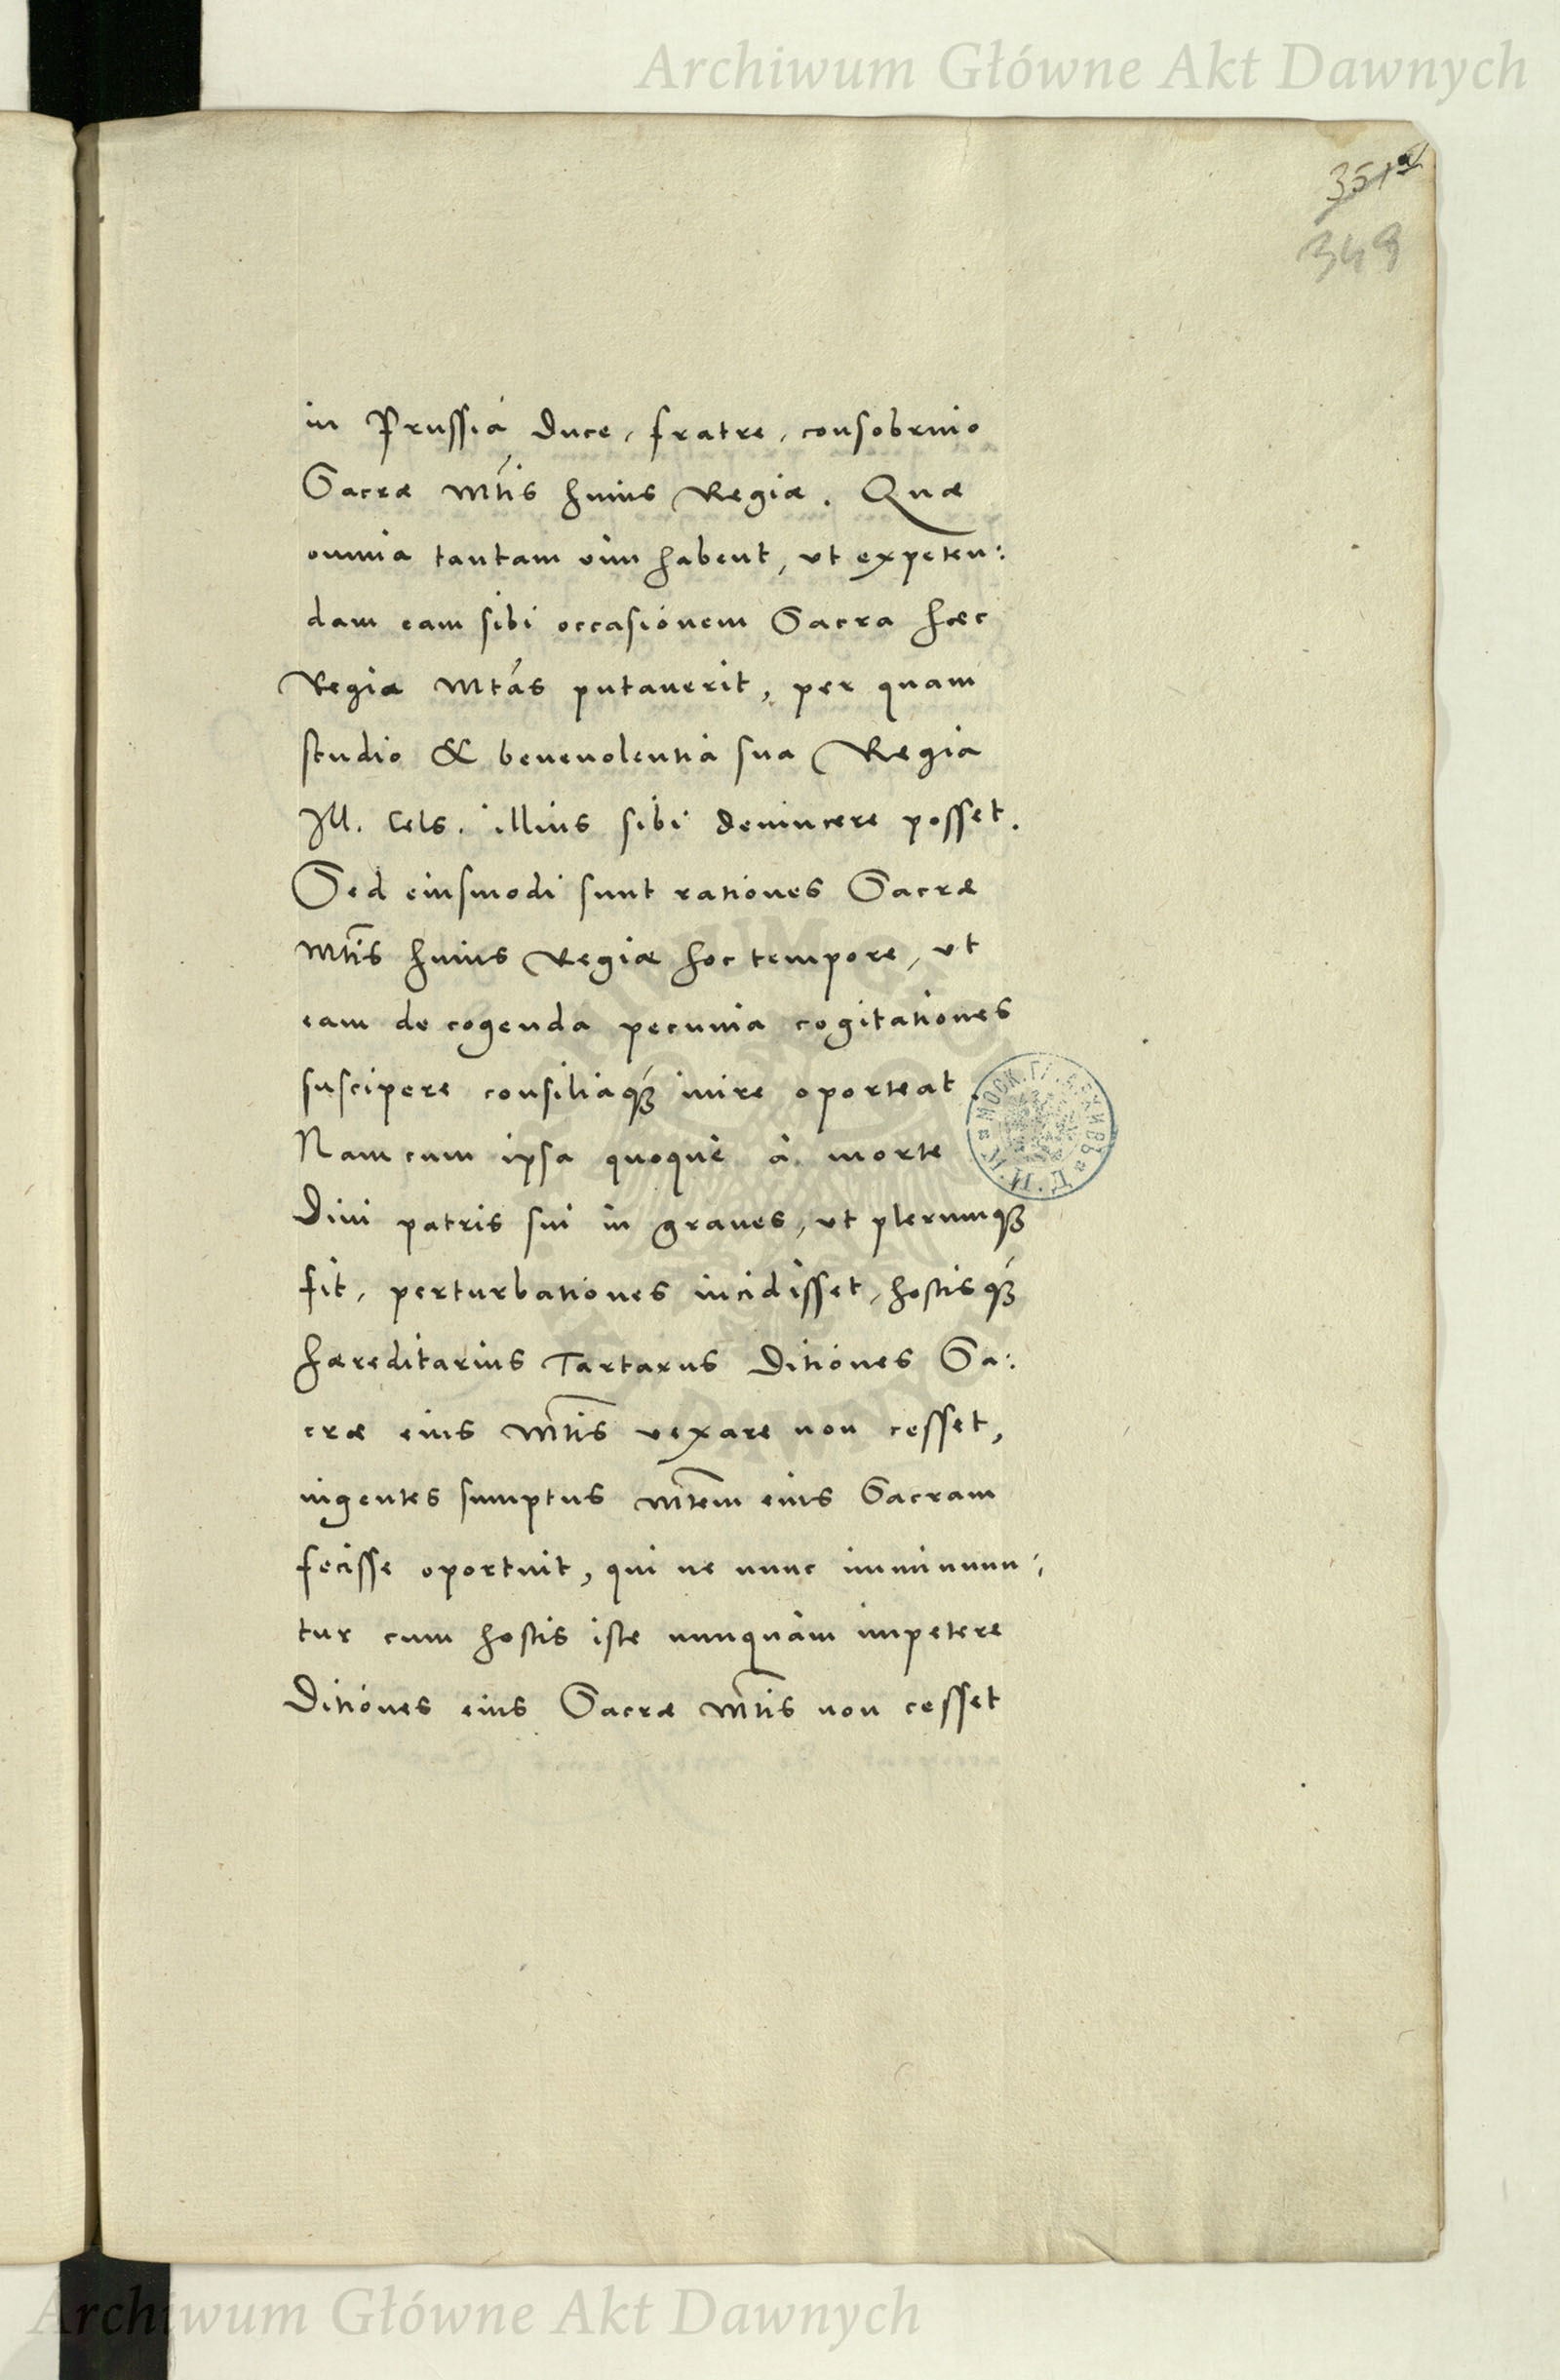 Archiwum Główne Akt Dawnych
351a
349
in Prussiá Duce, fratre, consobrino
Sacræ Mtis huius Regiæ. Quæ
omnia tantam vim habent, vt expeten:
dam eam sibi occasionem Sacra hæc
Regia Mtas putauerit, per quam
studio & beneuolentia sua Regia
Ill. Cels. illius sibi deuincere posset.
Sed eiusmodi sunt rationes Sacræ
Mtis huius Regiæ hoc tempore, vt
eam de cogenda pecunia cogitationes
suscipere consiliaq́ꝫ inire oporteat.
Nam cum ipsa quoque à morte
Diui patris sui in graues, vt plerumqꝫ
fit, perturbationes incidisset, hostisq́ꝫ
hæreditarius Tartarus Ditiones Sa:
cræ eius Mtis vexare non cesset,
ingentes sumptus Mtem eius Sacram
fecisse oportuit, qui ne nunc imminuun:
tur cum hostis iste nunquàm impetere
Ditiones eius Sacræ Mtis non cesset
Archiwum Główne Akt Dawnych